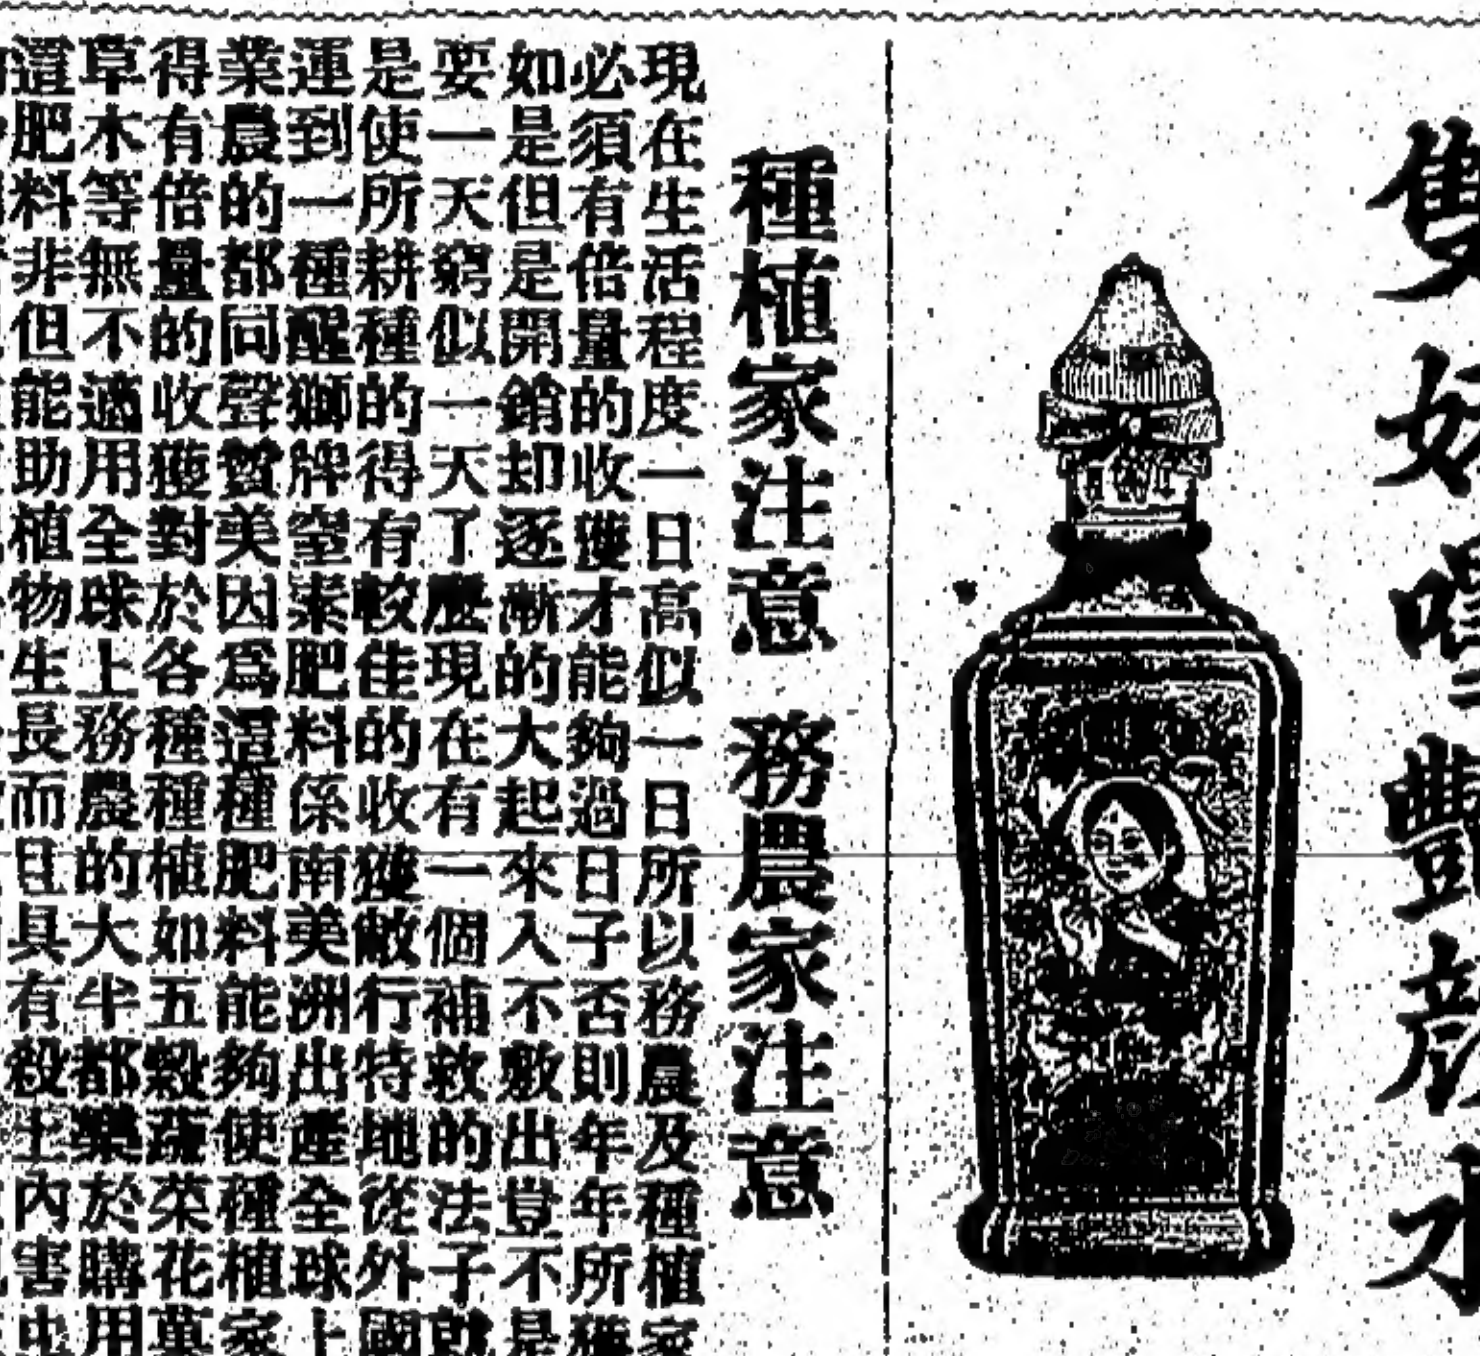 雙妹嚜豔顏水
種植家注意 務農家注意
現在生活程度一日高似一日所以務農及種植家
必須有倍量的收獲才能夠過日子否則年年所獲
如是但是開銷却逐漸的大起來入不敷出豈不是
要一天窮似一天了麼現在有一個補救的法子就
是使所耕種的得有較佳的收獲敝行特地從外國
運到一種醒獅牌窒素肥料係南美洲出產全球上
業農的都同聲贊美因爲這種肥料能夠使種植家
得有倍量的收獲對於各種種植如五穀蔬菜花菓
草木等無不適用全球上務農的大半都樂於購用
這肥料非但能助植物生長而且具有殺土內害虫